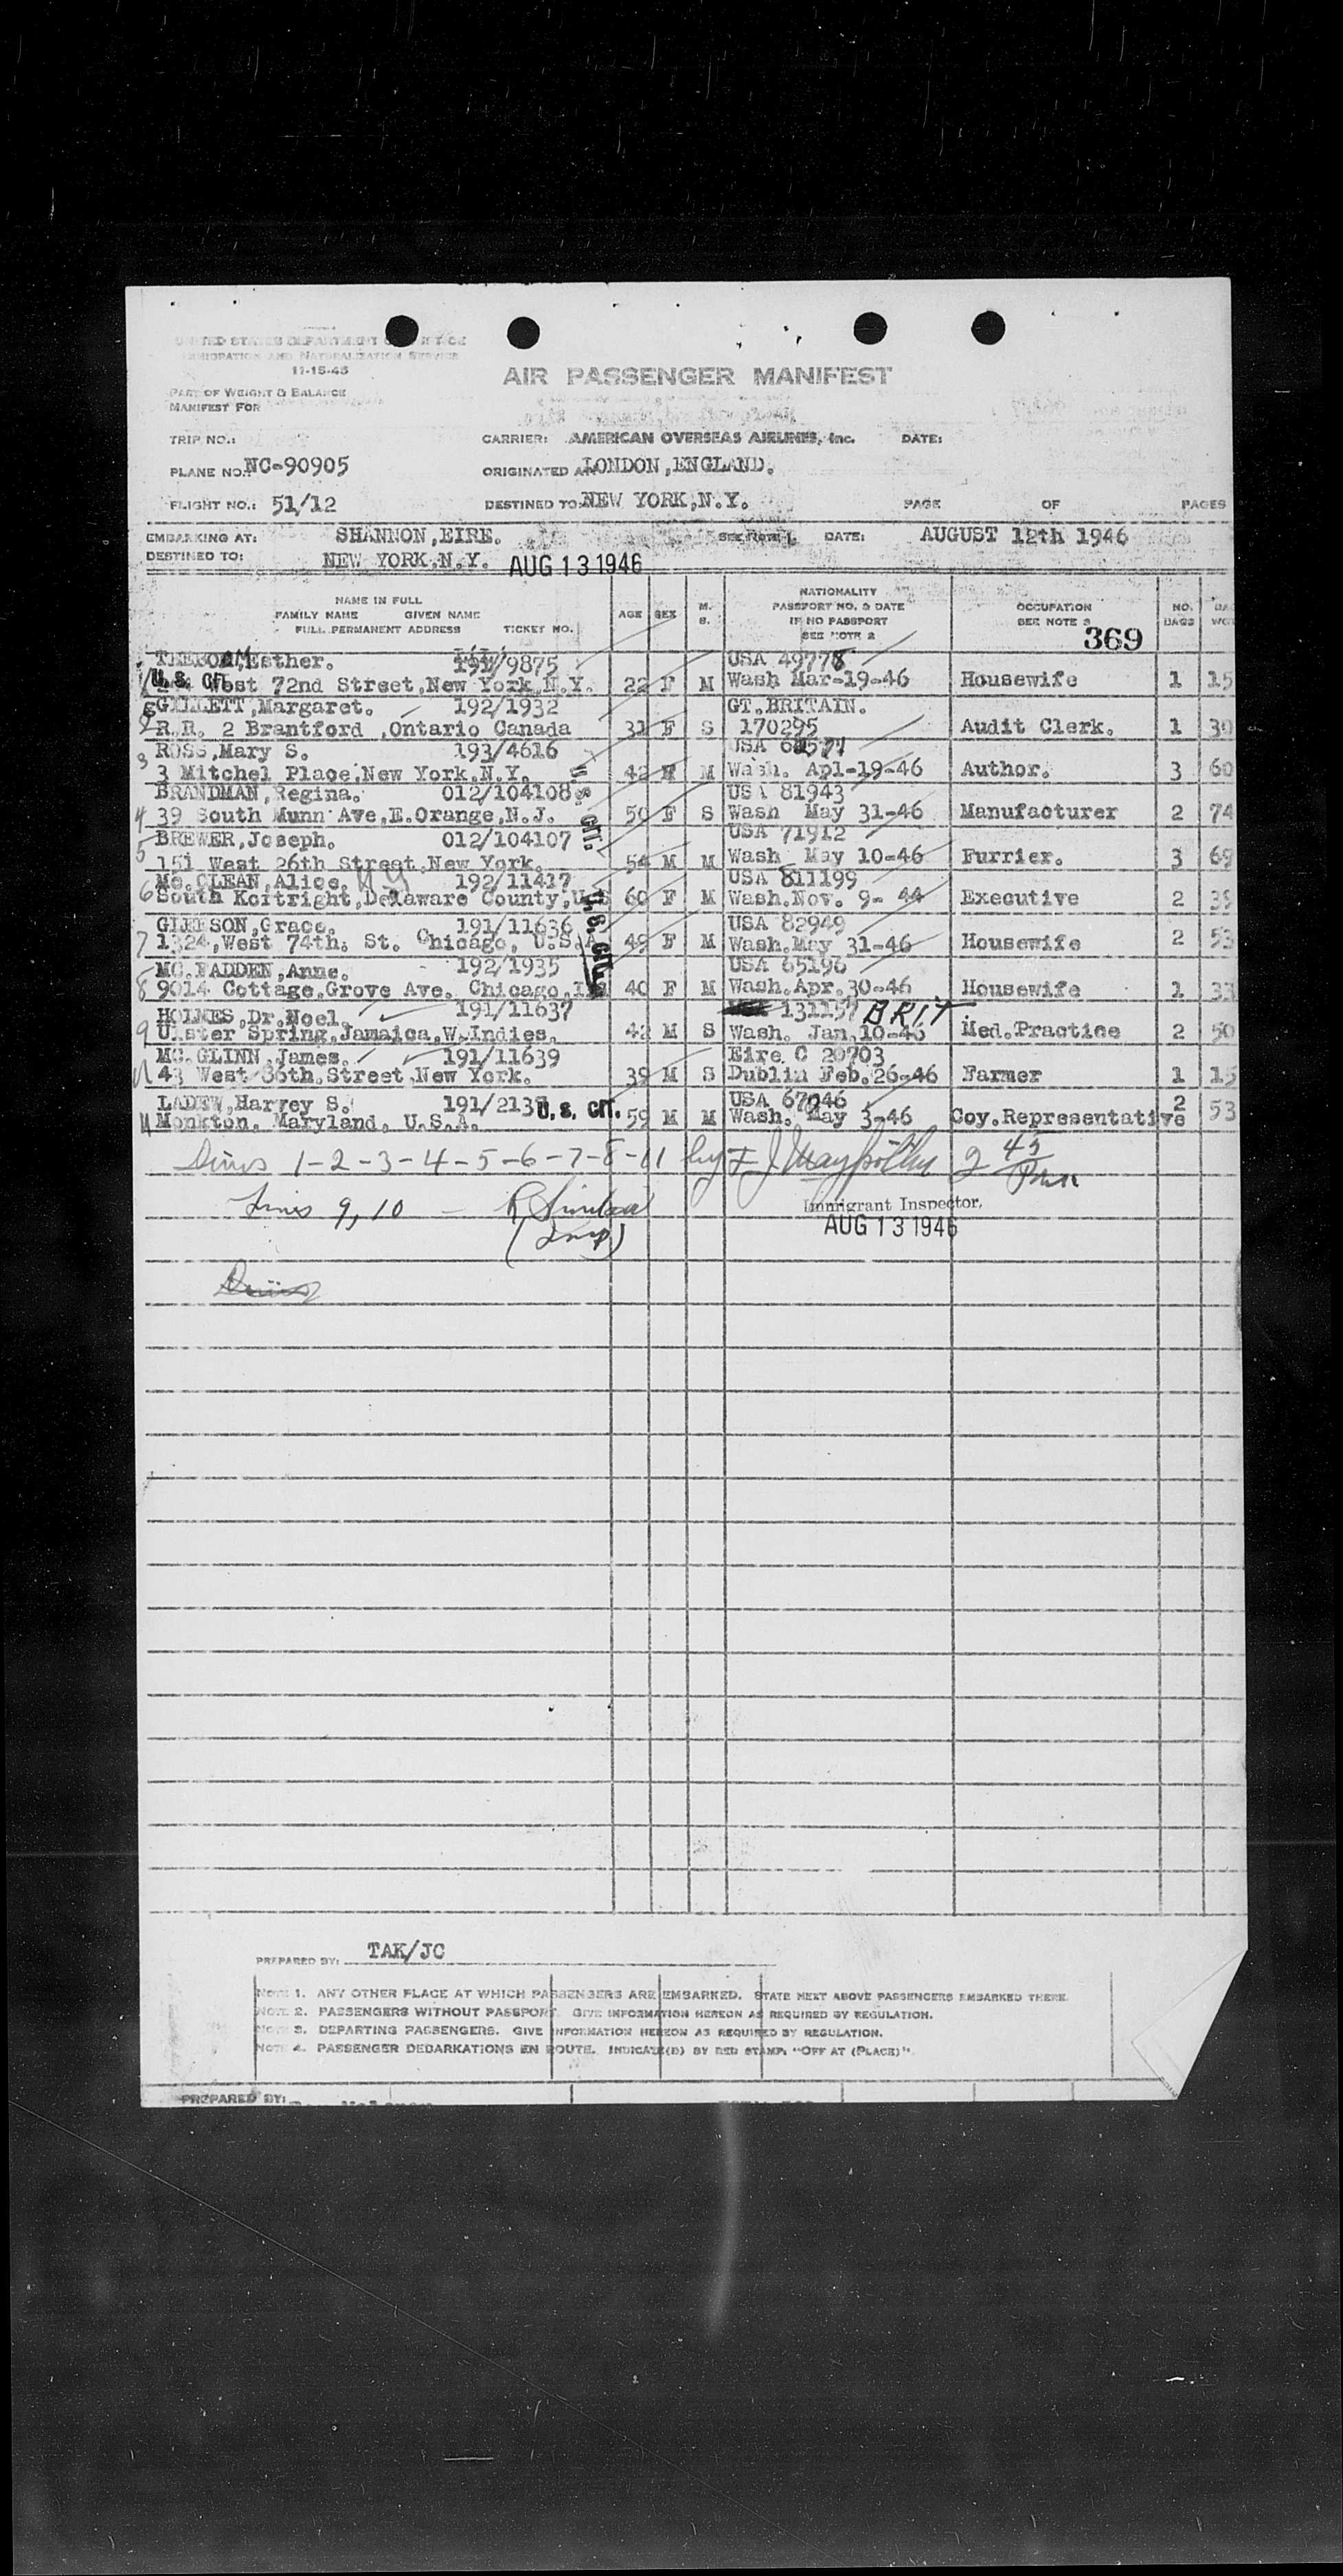 UNITED STATES DEPARTMENT OF JUSTICE
IMMIGRATION AND NATURALIZATION SERVICE
11-15-45
AIR PASSENGER MANIFEST
PART OF WEIGHT & BALANCE
MANIFEST FOR
TRIP NO.: CARRIER: AMERICAN OVERSEAS AIRLINES, Inc. DATE:
PLANE NO. NC-90905 ORIGINATED AT LONDON,ENGLAND.
FLIGHT NO.: 51/12 DESTINED TO: NEW YORK,N.Y. PAGE OF PAGES
EMBARKING AT: SHANNON,EIRE. SEE NOTE 1. DATE: AUGUST 12th 1946
DESTINED TO: NEW YORK,N.Y. AUG 13 1946
NAME IN FULL
FAMILY NAME GIVEN NAME
FULL PERMANENT ADDRESS TICKET NO.
AGE SEX M. S.
NATIONALITY
PASSPORT NO. & DATE
IF NO PASSPORT
SEE NOTE 2
OCCUPATION
SEE NOTE 3
NO. BAGS
369
Esther. /9875 USA 49778
1 U.S. CIT. West 72nd Street,New York,N.Y. 22 F M Wash Mar-19-46 Housewife 1 15
GILLETT,Margaret. 192/1932 GT.BRITAIN.
2 R.R. 2 Brantford ,Ontario Canada 31 F S 170295 Audit Clerk. 1 30
ROSS,Mary S. 193/4616 USA
3 3 Mitchel Place,New York.N.Y. 42 F M Wash. Apl-19-46 Author. 3 60
BRANDMAN,Regina. 012/104108 USA 81943
4 39 South Munn Ave,E.Orange,N.J. 50 F S Wash May 31-46 Manufacturer 2 74
U.S. CIT.
BREWER,Joseph. 012/104107 USA 71912
5 151 West 26th Street,New York. 54 M M Wash May 10-46 Furrier. 3 69
Mc.CLEAN,Alice. 192/11417 USA 811199
6 South Kortright,Delaware County,U.S 60 F M Wash.Nov. 9- 44 Executive 2 39
GLEESON,Grace. 191/11636 USA 82949
7 1324,West 74th. St. Chicago, U.S.A 49 F M Wash.May 31-46 Housewife 2 53
U.S. CIT.
MC.FADDEN,Anne. 192/1935 USA 65196
8 9014 Cottage,Grove Ave. Chicago, 40 F M Wash.Apr.30-46 Housewife 1 33
HOLMES,Dr.Noel. 191/11637 131157 BRIT.
9 Ulster Spring,Jamaica,W.Indies. 42 M S Wash. Jan,10-46 Med.Practice 2 50
MC.GLINN,James. 191/11639 Eire C 20703
43 West 36th.Street,New York. 39 M S Dublin Feb.26-46 Farmer 1 15
LADEW,Harvey S. 191/2137 U.S. CIT. USA 67946
11 Monkton. Maryland, U.S.A. 59 M M Wash. May 3-46 Coy.Representative 2 53
Lines 1-2-3-4-5-6-7-8-11 by
Lines 9, 10 -
(Insp)
Immigrant Inspector.
AUG 13 1946
PREPARED BY: TAK/JC
NOTE 1. ANY OTHER PLACE AT WHICH PASSENGERS ARE EMBARKED. STATE NEXT ABOVE PASSENGERS EMBARKED THERE.
NOTE 2. PASSENGERS WITHOUT PASSPORT. GIVE INFORMATION HEREON AS REQUIRED BY REGULATION.
NOTE 3. DEPARTING PASSENGERS. GIVE INFORMATION HEREON AS REQUIRED BY REGULATION.
NOTE 4. PASSENGER DEBARKATIONS EN ROUTE. INDICATE(D) BY RED STAMP. "OFF AT (PLACE)".
PREPARED BY: